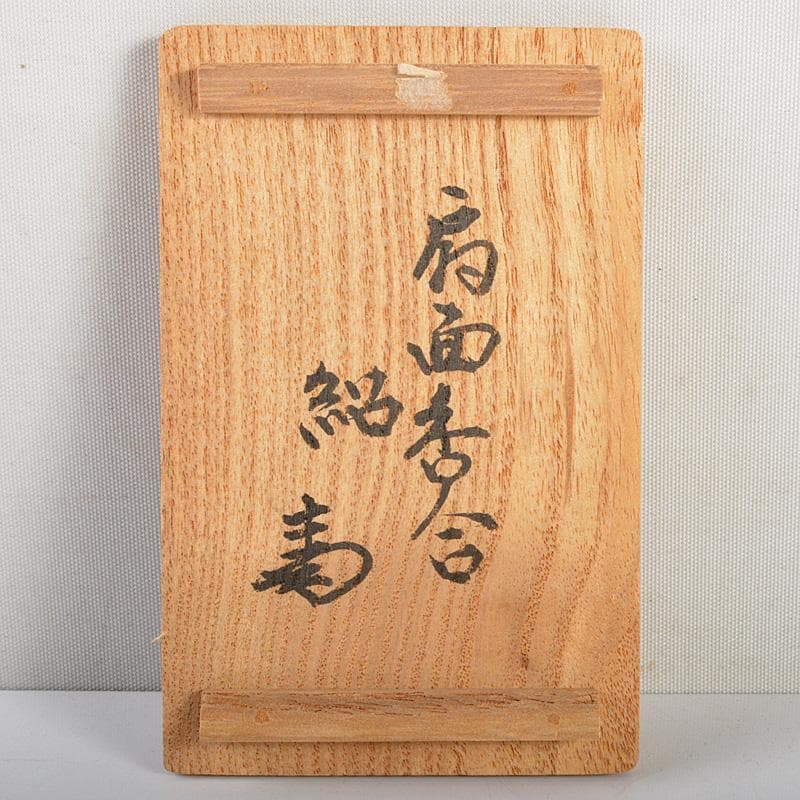 扇面香合
紹壽